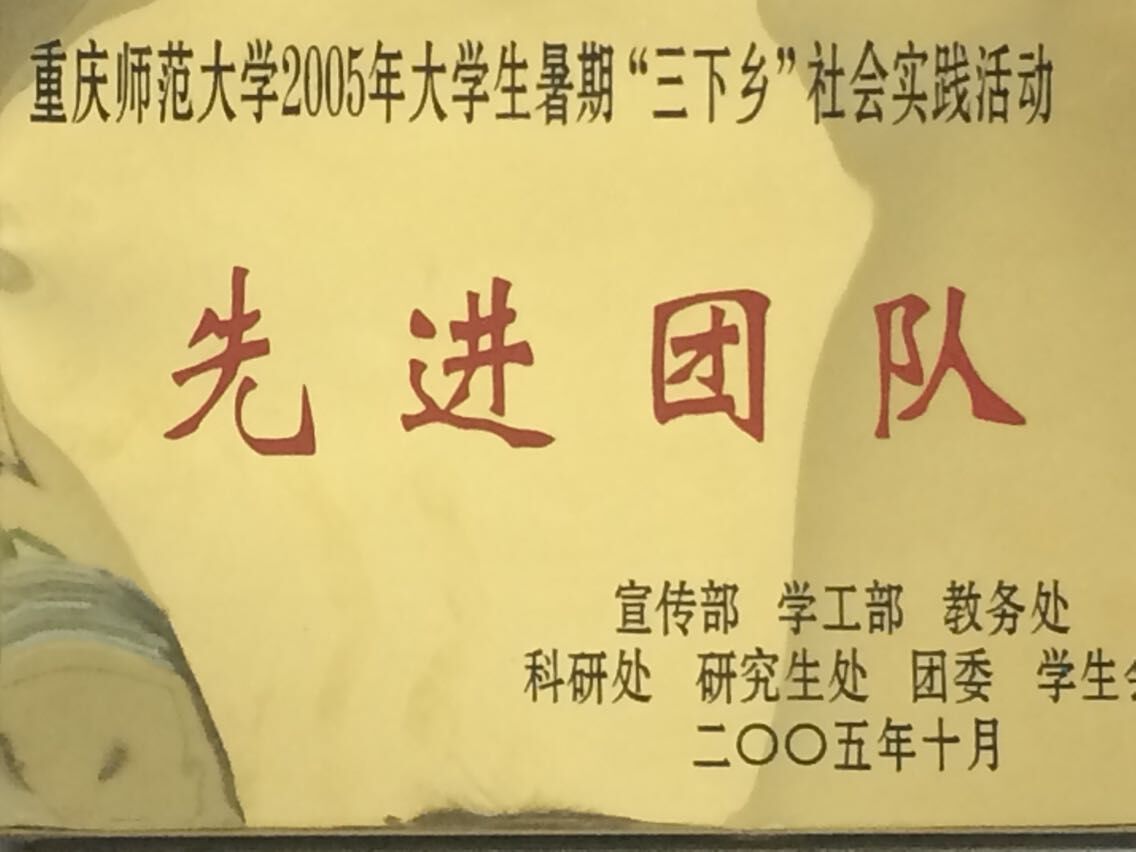 重庆师范大学2005年大学生暑期“三下乡”社会实践活动
先进团队
宣传部 学工部 教务处
科研处 研究生处 团委 学生会
二〇〇五年十月